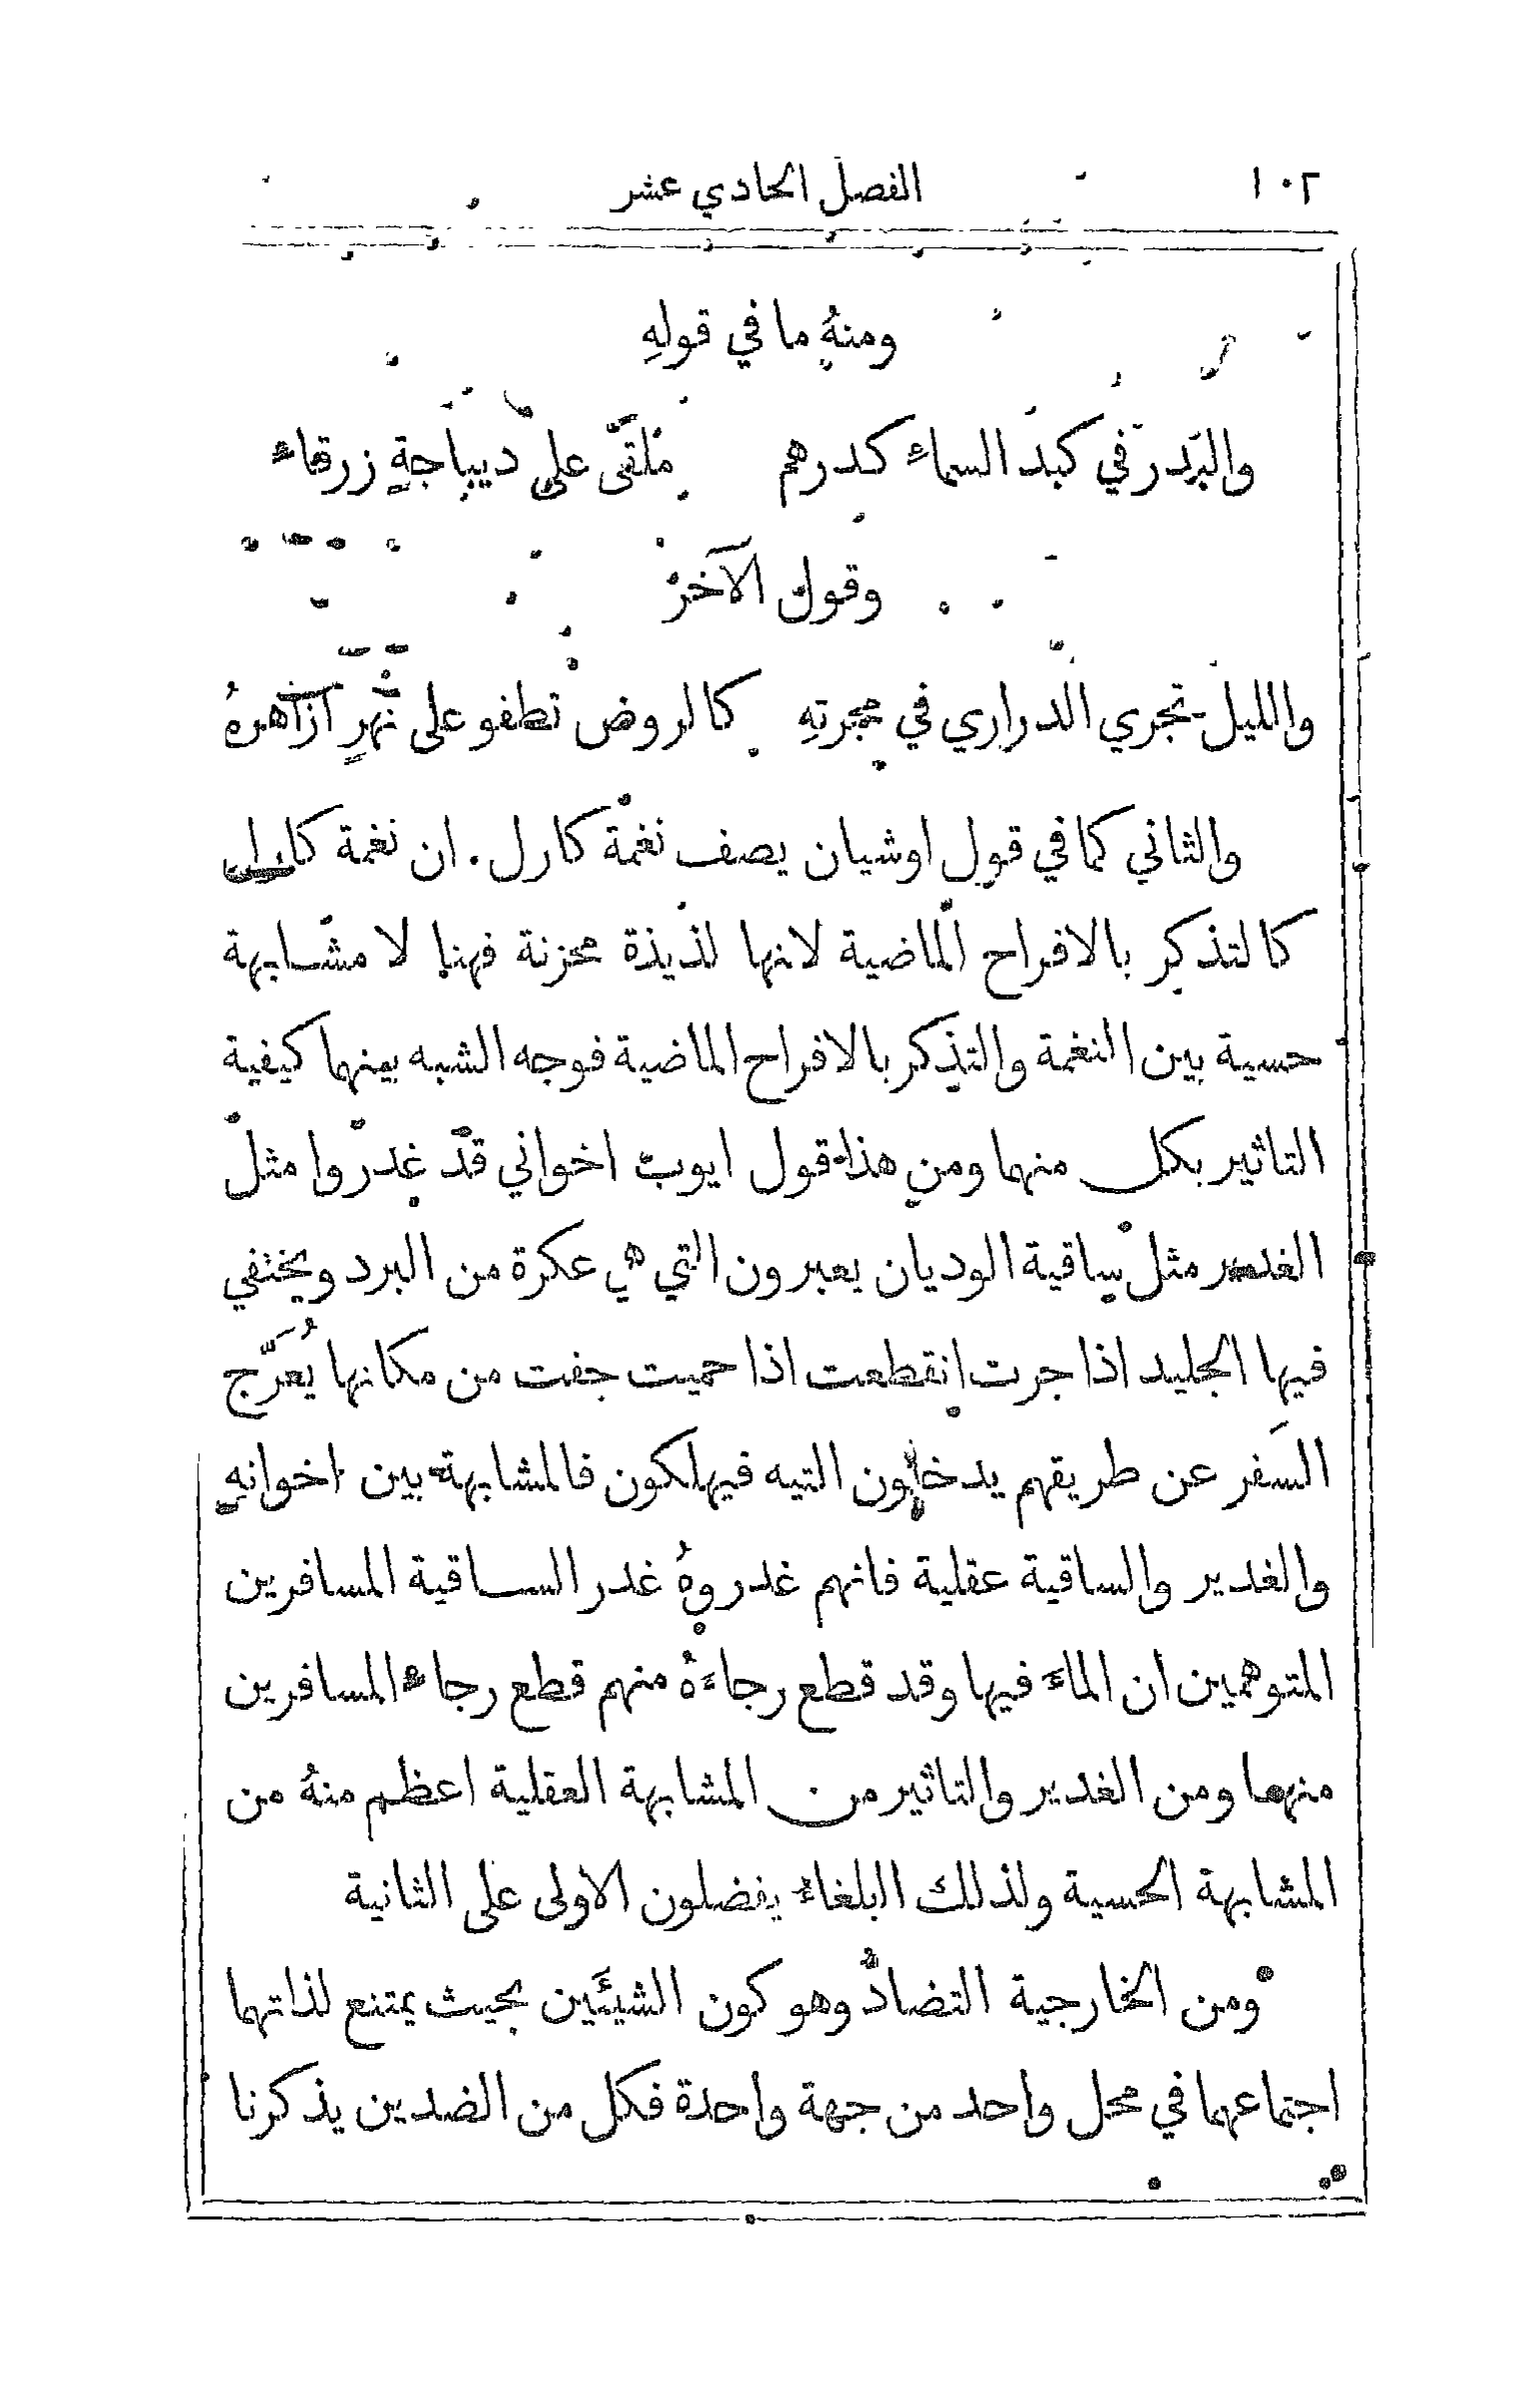 ١٠٢ الفصل الحادي عشر
ومنهُ ما في قولهِ
والبدر في كبد السماء كدرهم ملقىً على ديباجةٍ زرقاء
وقول الآخر
والليل تجري الدراري في مجرتهِ كالروض تطفو على نهرٍ ازاهرهُ
والثاني كما في قول اوشيان يصف نغمة كارل . ان نغمة كارل
كالتذكر بالافراح الماضية لانها لذيذة محزنة فهنا لا مشابهة
حسية بين النغمة والتذكر بالافراح الماضية فوجه الشبه بينهما كيفية
التاثير بكل منهما ومن هذا قول ايوب اخواني قد غدروا مثل
الغدير مثل ساقية الوديان يعبرون التي هي عكرة من البرد ويختفي
فيها الجليد اذا جرت انقطعت اذا حميت جفت من مكانها يُعرَّج
السَفر عن طريقهم يدخلون التيه فيهلكون فالمشابهة بين اخوانهِ
والغدير والساقية عقلية فانهم غدروهُ غدر الساقية المسافرين
المتوهمين ان الماءَ فيها وقد قطع رجاءهُ منهم قطع رجاء المسافرين
منهما ومن الغدير والتاثير من المشابهة العقلية اعظم منهُ من
المشابهة الحسية ولذلك البلغاء يفضلون الاولى على الثانية
ومن الخارجية التضادُّ وهو كون الشيئَين بحيث يمتنع لذاتهما
اجتماعهما في محل واحد من جهة واحدة فكل من الضدين يذكرنا